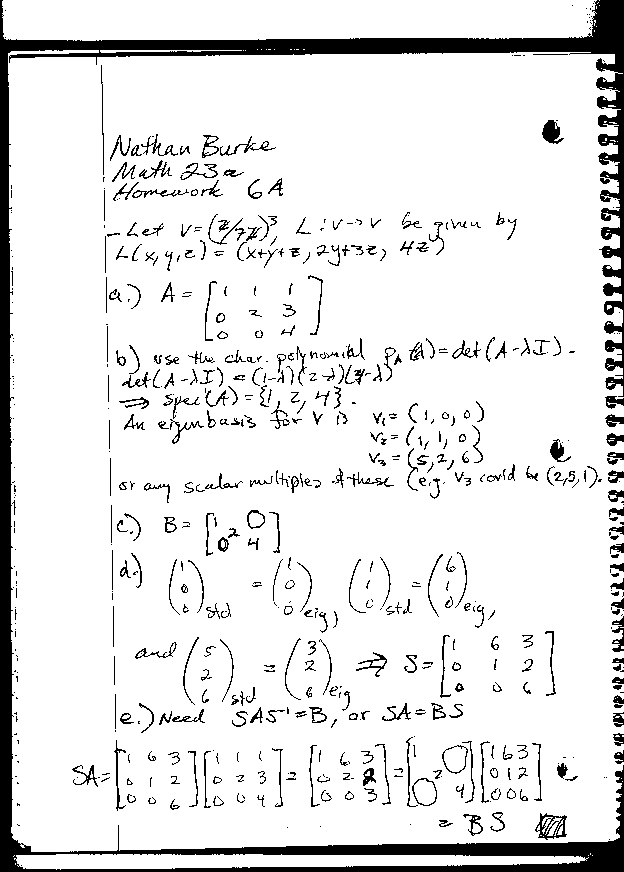 Nathan Burke
Math 23a
Homework 6A
- Let V=(Z/7Z)³, L:V→V be given by
L(x,y,z) = (x+y+z, 2y+3z, 4z)
a.) A = [1 1 1
0 2 3
0 0 4]
b) use the char. polynomial p_A(λ)=det(A-λI).
det(A-λI) = (1-λ)(2-λ)(4-λ)
⇒ spec(A) = {1, 2, 4}.
An eigenbasis for V is v₁=(1,0,0)
v₂=(1,1,0)
v₃=(5,2,6)
or any scalar multiples of these (e.g. v₃ could be (2,5,1).
c.) B = [1 0
2
0 4]
d.) (1 0 0)std = (1 0 0)eig, (1 1 0)std = (6 1 0)eig,
and (5 2 6)std = (3 2 6)eig ⇒ S = [1 6 3
0 1 2
0 0 6]
e.) Need SAS⁻¹=B, or SA=BS
SA = [1 6 3 [1 1 1 = [1 6 3 = [1 0 [1 6 3
0 1 2 0 2 3 0 2 2 2 0 1 2
0 0 6] 0 0 4] 0 0 3] 0 4] 0 0 6]
= BS